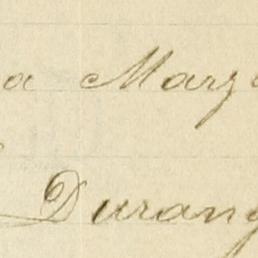 a Marg
Durang